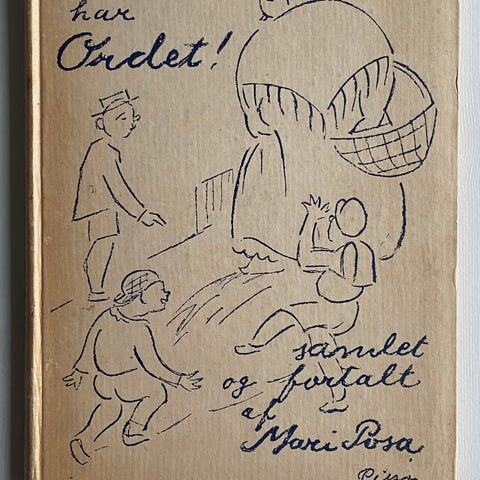 har
Ordet!
samlet
og fortalt
af
Mari Posa